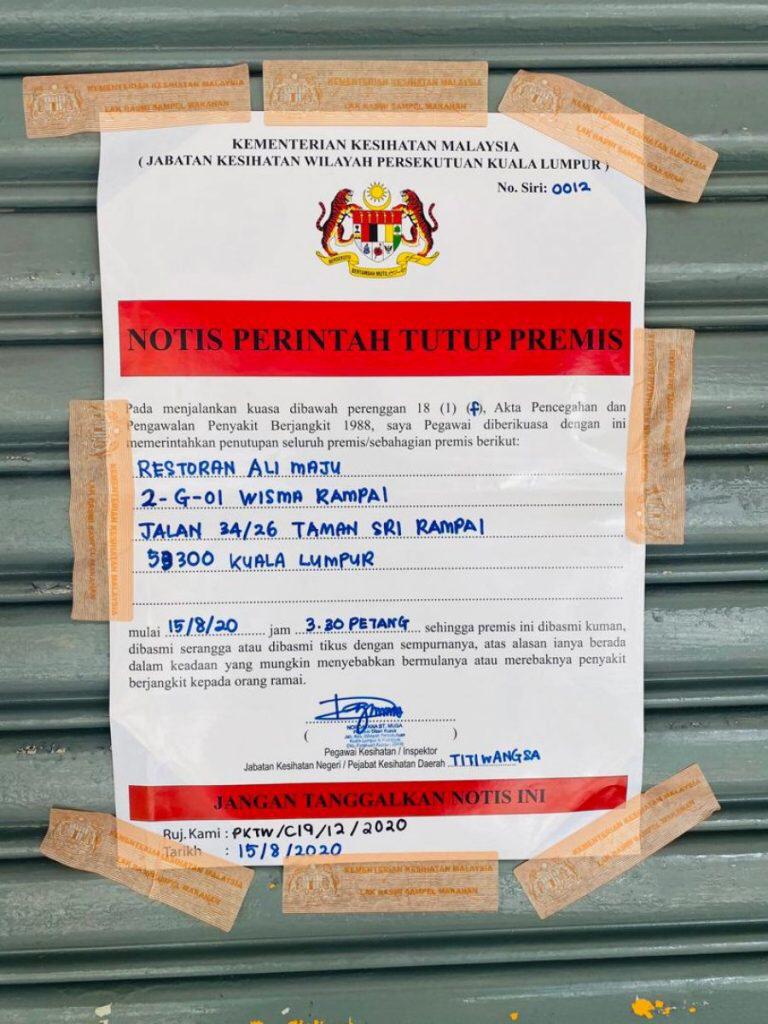 KEMENTERIAN KESIHATAN MALAYSIA
LAK RASMI SAMPEL MAKANAN
KEMENTERIAN KESIHATAN MALAYSIA
LAK RASMI SAMPEL MAKANAN
KEMENTERIAN KESIHATAN MALAYSIA
LAK RASMI SAMPEL MAKANAN
KEMENTERIAN KESIHATAN MALAYSIA
( JABATAN KESIHATAN WILAYAH PERSEKUTUAN KUALA LUMPUR )
No. Siri: 0012
NOTIS PERINTAH TUTUP PREMIS
Pada menjalankan kuasa dibawah perenggan 18 (1) (f), Akta Pencegahan dan
Pengawalan Penyakit Berjangkit 1988, saya Pegawai diberikuasa dengan ini
memerintahkan penutupan seluruh premis/sebahagian premis berikut:
RESTORAN ALI MAJU
2-G-01 WISMA RAMPAI
JALAN 34/26 TAMAN SRI RAMPAI
53300 KUALA LUMPUR
mulai 15/8/20 jam 3.30 PETANG sehingga premis ini dibasmi kuman,
dibasmi serangga atau dibasmi tikus dengan sempurnanya, atas alasan ianya berada
dalam keadaan yang mungkin menyebabkan bermulanya atau merebaknya penyakit
berjangkit kepada orang ramai.
( )
Pegawai Kesihatan / Inspektor
Jabatan Kesihatan Negeri / Pejabat Kesihatan Daerah TITIWANGSA
JANGAN TANGGALKAN NOTIS INI
Ruj. Kami : PKTW/C19/12/2020
Tarikh : 15/8/2020
KEMENTERIAN KESIHATAN MALAYSIA
LAK RASMI SAMPEL MAKANAN
KEMENTERIAN KESIHATAN MALAYSIA
LAK RASMI SAMPEL MAKANAN
KEMENTERIAN KESIHATAN MALAYSIA
LAK RASMI SAMPEL MAKANAN